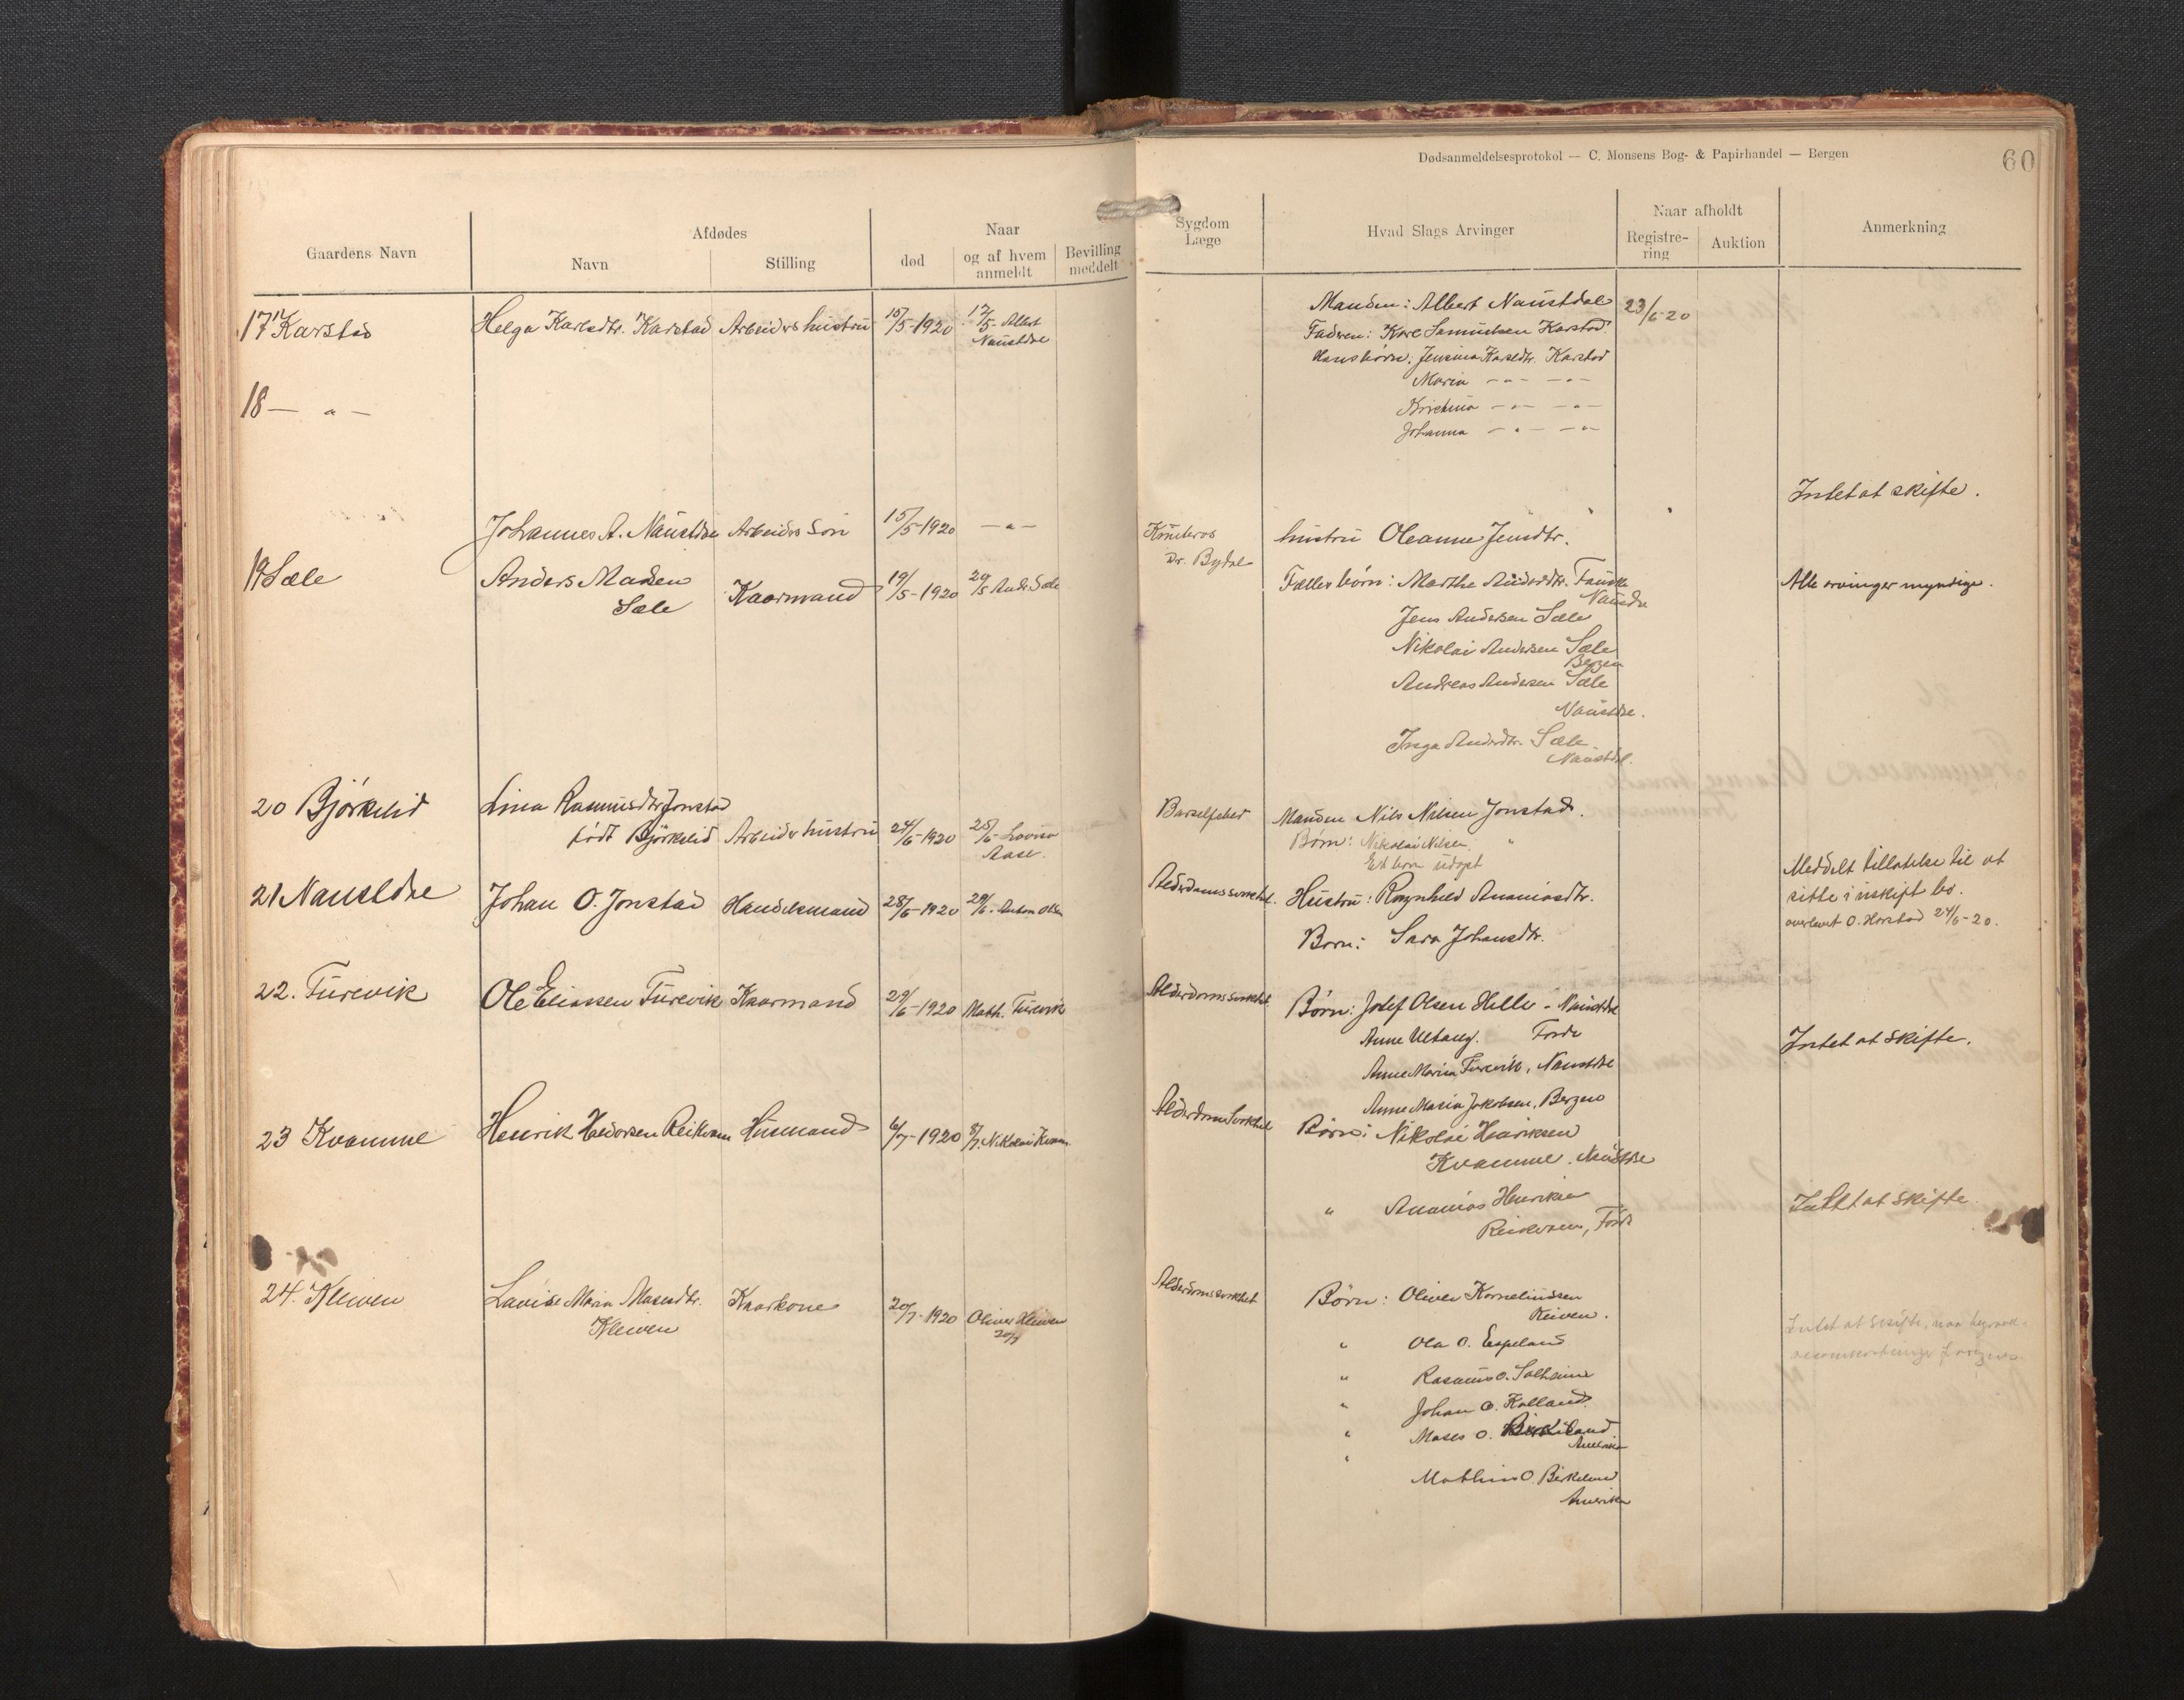 Dødsanmeldelsesprotokol — C. Monsens Bog- & Papirhandel — Bergen
60
Gaardens Navn
Afdødes
Navn
Stilling
Naar
død
og af hvem anmeldt
Bevilling meddelt
Sygdom
Læge
Hvad Slags Arvinger
Naar afholdt
Registre-
ring
Auktion
Anmerkning
17 Karstad Helga Karlsdtr. Karstad Arbeiders hustru 15/5-1920 17/5- Albert
Naustdal
Manden: Albert Naustdal 23/6-20
Faderen: Karl Samuelsen Karstad
Hans børn: Jensina Karlsdtr. Karstad
Maria -"- -"-
Kristina -"- -"-
Johanna -"- -"-
18 — " —
Johannes A. Naustdal Arbeiders Søn 15/5-1920 —"—
Intet at skifte.
19 Sæle Anders Madsen
Sæle
Kaarmand 19/5-1920 20/5 And. Sæle
Dr. Bydal
hustru Oleanne Jensdtr.
Fælles børn: Marthe Andersdtr.
Jens Andersen Sæle
Nikolai Andersen Sæle
Bergen
Andreas Andersen Sæle
Naustdal.
Inga Andersdtr. Sæle
Naustdal.
Alle arvinger myndige.
20 Björkelid Lina Rasmusdtr Jonstad
født Björkelid Arbeider hustru 24/6-1920 25/6- Lovisa
Aase.
Barselfeber
Manden Nils Nilsen Jonstad.
Børn: Nikolai Nilsen "
Et barn udøpt
21 Naustdal Johan O. Jonstad Handelsmand 28/6-1920 29/6- Anton Olsen
Alderdomssvakhet.
Hustru: Ragnhild Ananiasdtr.
Barn: Sara Johansdtr.
Meddelt tillatelse til at
sitte i uskift bo.
overlevert O. Horstad 24/6-20.
22. Furevik Ole Eliassen Furevik Kaarmand 29/6-1920 Math. Furevik
Alderdomssvakhet
Børn: Josef Olsen Helle - Naustdal
Anne Ultang. Førde
Anne Marina Furevik, Naustdal
Anne Maria Jakobsen, Bergen
Intet at skifte.
23 Kvamme Henrik Haldorsen Reikvam Husmand 6/7-1920 8/7. Nikolai Kvam.
Alderdomssvakhet
Børn: Nikolai Henriksen
Kvamme. Naustdal
" Ananias Henriksen
Reikvam, Førde
Intet at skifte.
24. Kleiven Lavise Maria Mosesdtr.
Kleiven
Kaarkone 20/7-1920 Oliver Kleiven
20/7
Alderdomssvakhet
Børn: Oliver Kornelinssen
Kleiven.
" Ola O. Espeland
" Rasmus O. Solheim
" Johan O. Kalland.
" Moses O. Birkeland
Amerika
" Mathias O. Birkeland
Amerika
Intet at skifte, naa begravelse